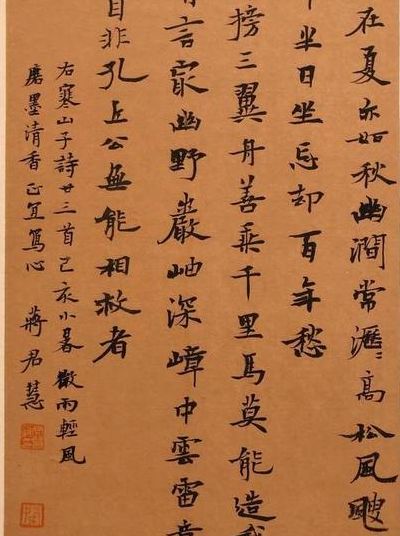 在夏亦如秋幽澗常瀝〻高松風颼
中半日坐忘却百年愁
搒三翼舟善乘千里馬莫能造我
言㝡幽野巖岫深嶂中雲雷竟
自非孔丘公無能相救者
右寒山子詩廿三首己亥小暑微雨輕風
磨墨清香正宜寫心 蔣君慧